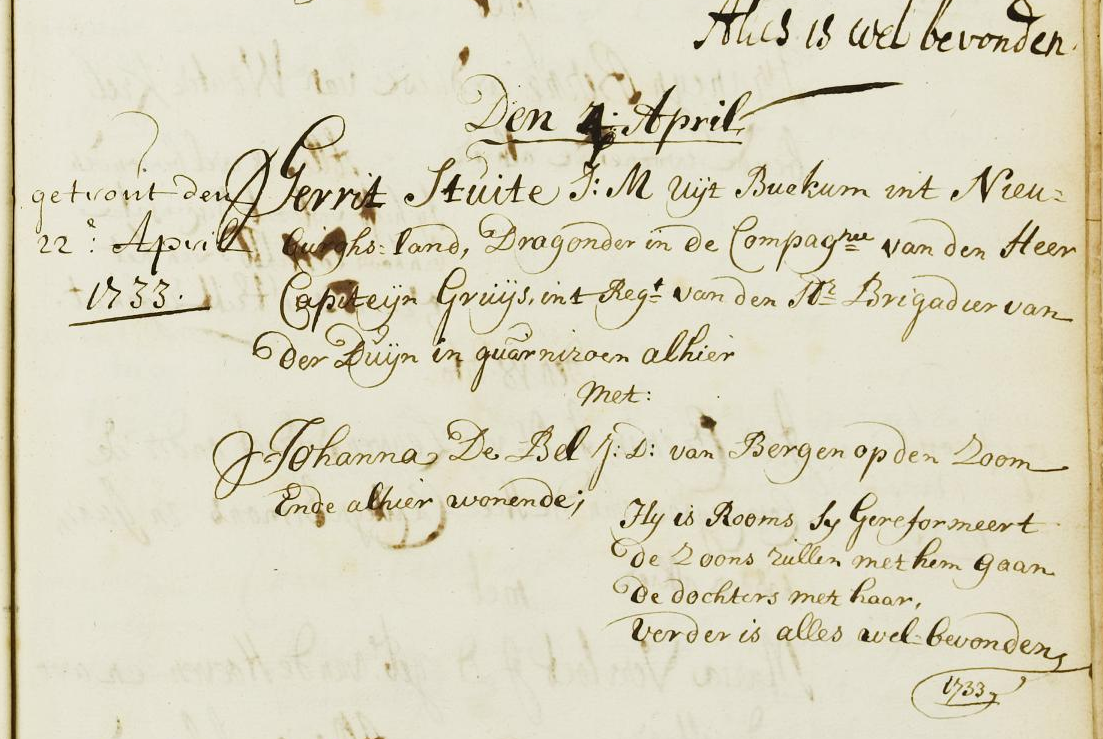 Alles is wel bevonden.
Den 4: April
getrout den
22e: April
1733.
Gerrit Stuite J: M uijt Buekum int Nieu=
burghs=land, Dragonder in de Compagnee van den Heer
Capiteijn Gruijs, int Regt van den Hr Brigadier van
der Duijn in guarnizoen alhier
Met:
Johanna De Bel J: D: van Bergen op den Zoom
Ende alhier wonende;
Hy is Rooms, Sy Gereformeert
de Zoons zullen met hem gaan
de dochters met haar,
verder is alles wel=bevonden,
1733